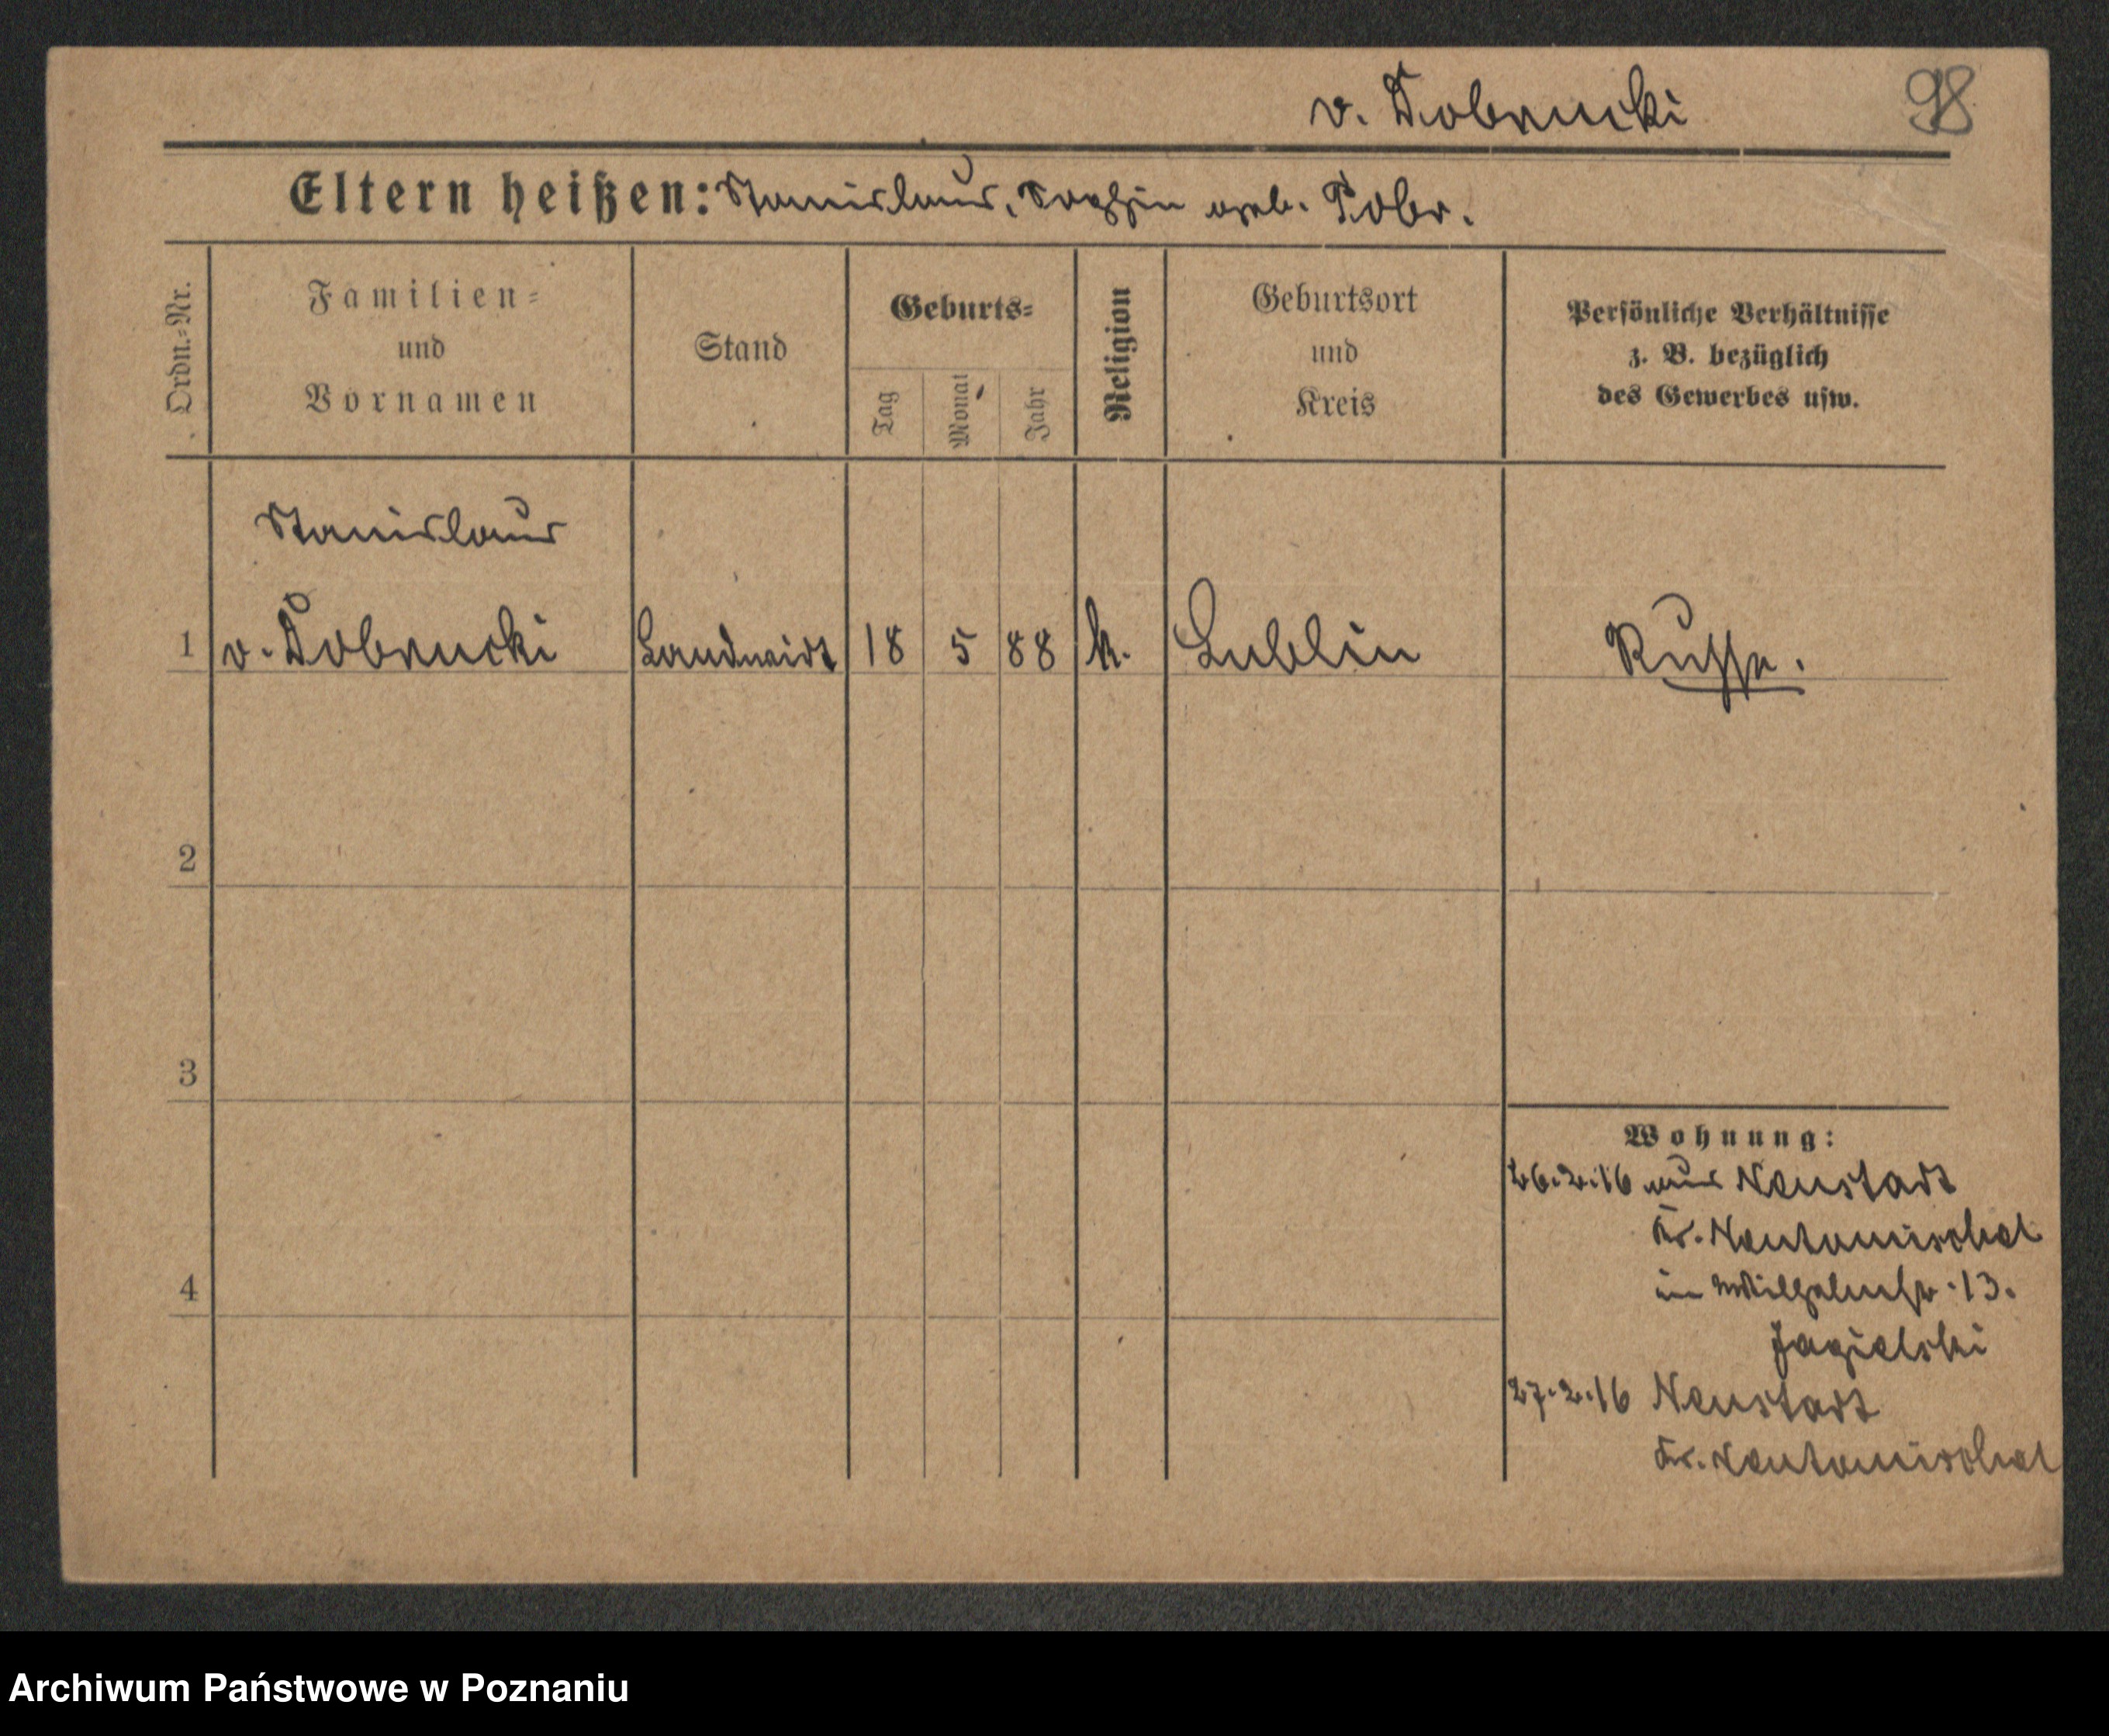 v. Dobrucki
98
Eltern heißen: Stanislaus, Sophie geb. Dobr.
Ordn.-Nr.
Familien-
und
Vornamen
Stand
Geburts-
Tag
Monat
Jahr
Religion
Geburtsort
und
Kreis
Persönliche Verhältnisse
z. B. bezüglich
des Gewerbes usw.
Stanislaus
1 v. Dobrucki Landwirt 18 5 88 k. Lublin Russe.
2
3
4
Wohnung:
26.2.16 aus Neustadt
Kr. Neutomischel
in Wilhelmstr. 13.
Jagielski
27.2.16 Neustadt
Kr. Neutomischel
Archiwum Państwowe w Poznaniu